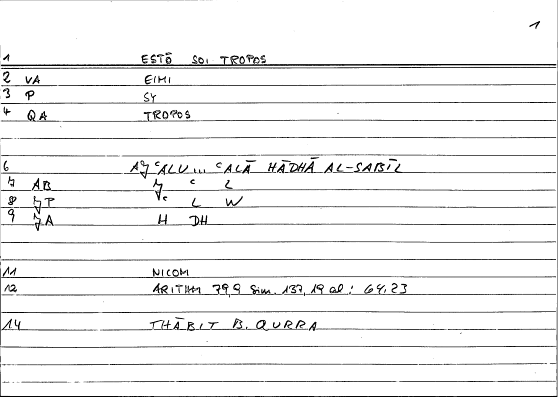 1
1 ESTŌ SOI TROPOS
2 VA EIMI
3 P SY
4 QA TROPOS
6 AJʿALU... ʿALĀ HĀDHĀ AL-SABĪL
7 AB J ʿ L
8 JP ʿ L W
9 JA H DH
11 NICOM
12 ARITHM 79,9 Sim. 137,19 al: 64.23
14 THĀBIT B. QURRA